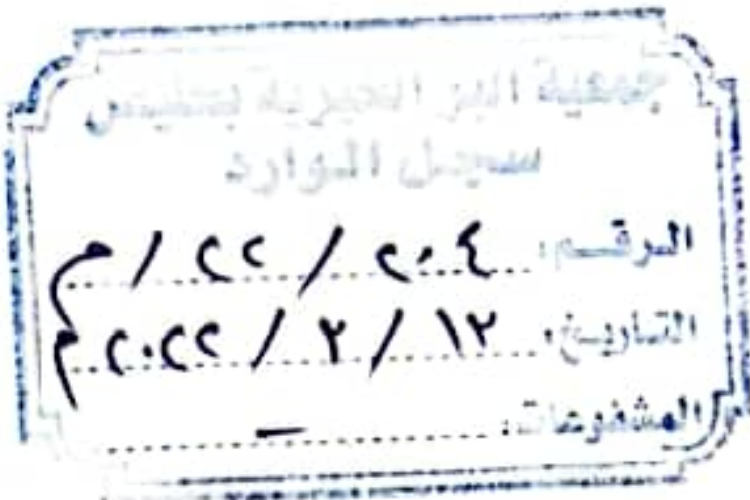 جمعية البر الخيرية بتثليث
سجل الوارد
الرقم: ٢٠٤ / ٢٢ / م
التاريخ: ١٢ / ٢ / ٢٠٢٢ م
المشفوعات: —